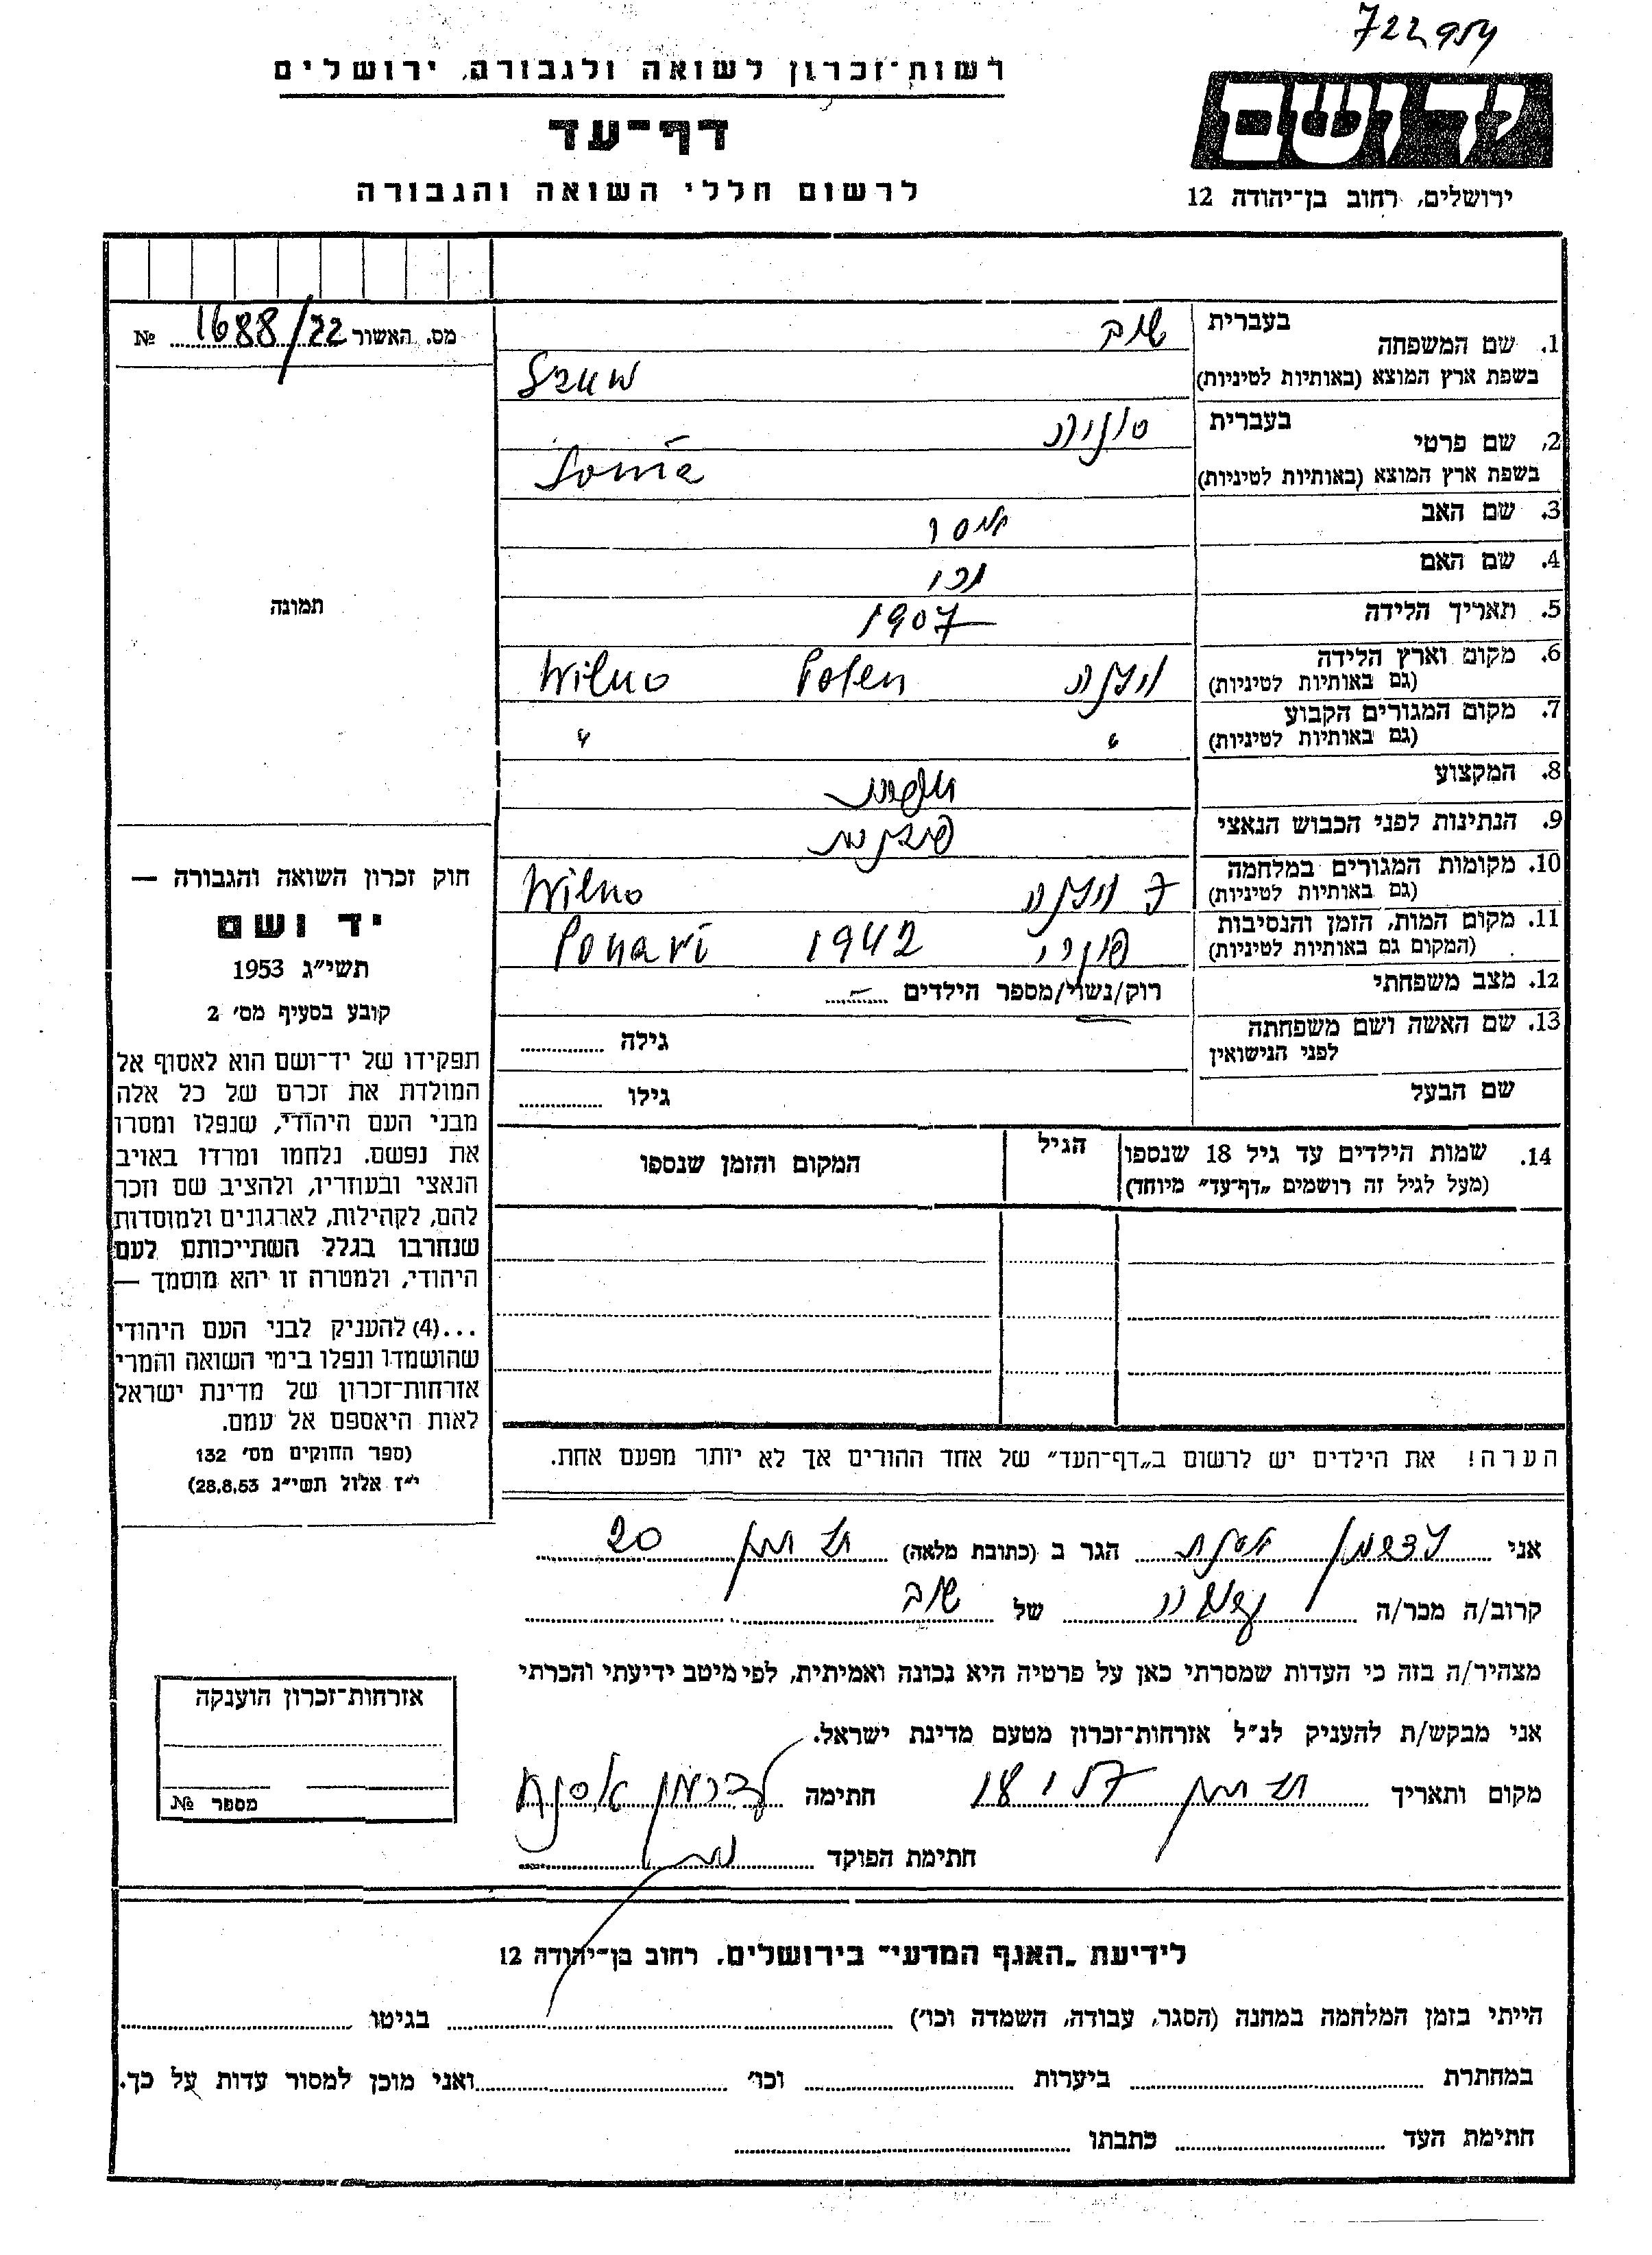 722954
רשות־זכרון לשואה ולגבורה, ירושלים
דף־עד
לרשום חללי השואה והגבורה
יד ושם
ירושלים, רחוב בן־יהודה 12
מס. האשור 1688/22 №
תמונה
חוק זכרון השואה והגבורה —
יד ושם
תשי״ג 1953
קובע בסעיף מס׳ 2
תפקידו של יד־ושם הוא לאסוף אל
המולדת את זכרם של כל אלה
מבני העם היהודי, שנפלו ומסרו
את נפשם, נלחמו ומרדו באויב
הנאצי ובעוזריו, ולהציב שם וזכר
להם, לקהילות, לארגונים ולמוסדות
שנחרבו בגלל השתייכותם לעם
היהודי, ולמטרה זו יהא מוסמך —
...(4) להעניק לבני העם היהודי
שהושמדו ונפלו בימי השואה והמרי
אזרחות־זכרון של מדינת ישראל
לאות היאספם אל עמם.
(ספר החוקים מס׳ 132
י״ז אלול תשי״ג 28.8.53)
1. שם המשפחה בעברית
בשפת ארץ המוצא (באותיות לטיניות)
2. שם פרטי בעברית סוניה
בשפת ארץ המוצא (באותיות לטיניות) Sonia
3. שם האב
4. שם האם
5. תאריך הלידה 1907
6. מקום וארץ הלידה
(גם באותיות לטיניות) וילנה Polen Wilno
7. מקום המגורים הקבוע
(גם באותיות לטיניות) " "
8. המקצוע
9. הנתינות לפני הכבוש הנאצי פולנית
10. מקומות המגורים במלחמה
(גם באותיות לטיניות) וילנה Wilno
11. מקום המות, הזמן והנסיבות
(המקום גם באותיות לטיניות) פונרי 1942 Ponari
12. מצב משפחתי רוק/נשוי/מספר הילדים —
13. שם האשה ושם משפחתה
לפני הנישואין גילה
שם הבעל גילו
14. שמות הילדים עד גיל 18 שנספו
(מעל לגיל זה רושמים „דף־עד״ מיוחד)
הגיל
המקום והזמן שנספו
הערה! את הילדים יש לרשום ב„דף־העד״ של אחד ההורים אך לא יותר מפעם אחת.
אני הגר ב (כתובת מלאה) 20
קרוב/ה מכר/ה של
מצהיר/ה בזה כי העדות שמסרתי כאן על פרטיה היא נכונה ואמיתית, לפי מיטב ידיעתי והכרתי
אני מבקש/ת להעניק לנ״ל אזרחות־זכרון מטעם מדינת ישראל.
מקום ותאריך חתימה
חתימת הפוקד
אזרחות־זכרון הוענקה
מספר №
לידיעת „האגף המדעי״ בירושלים, רחוב בן־יהודה 12
הייתי בזמן המלחמה במחנה (הסגר, עבודה, השמדה וכו׳) בגיטו
במחתרת ביערות וכו׳ ואני מוכן למסור עדות על כך.
חתימת העד כתבתו